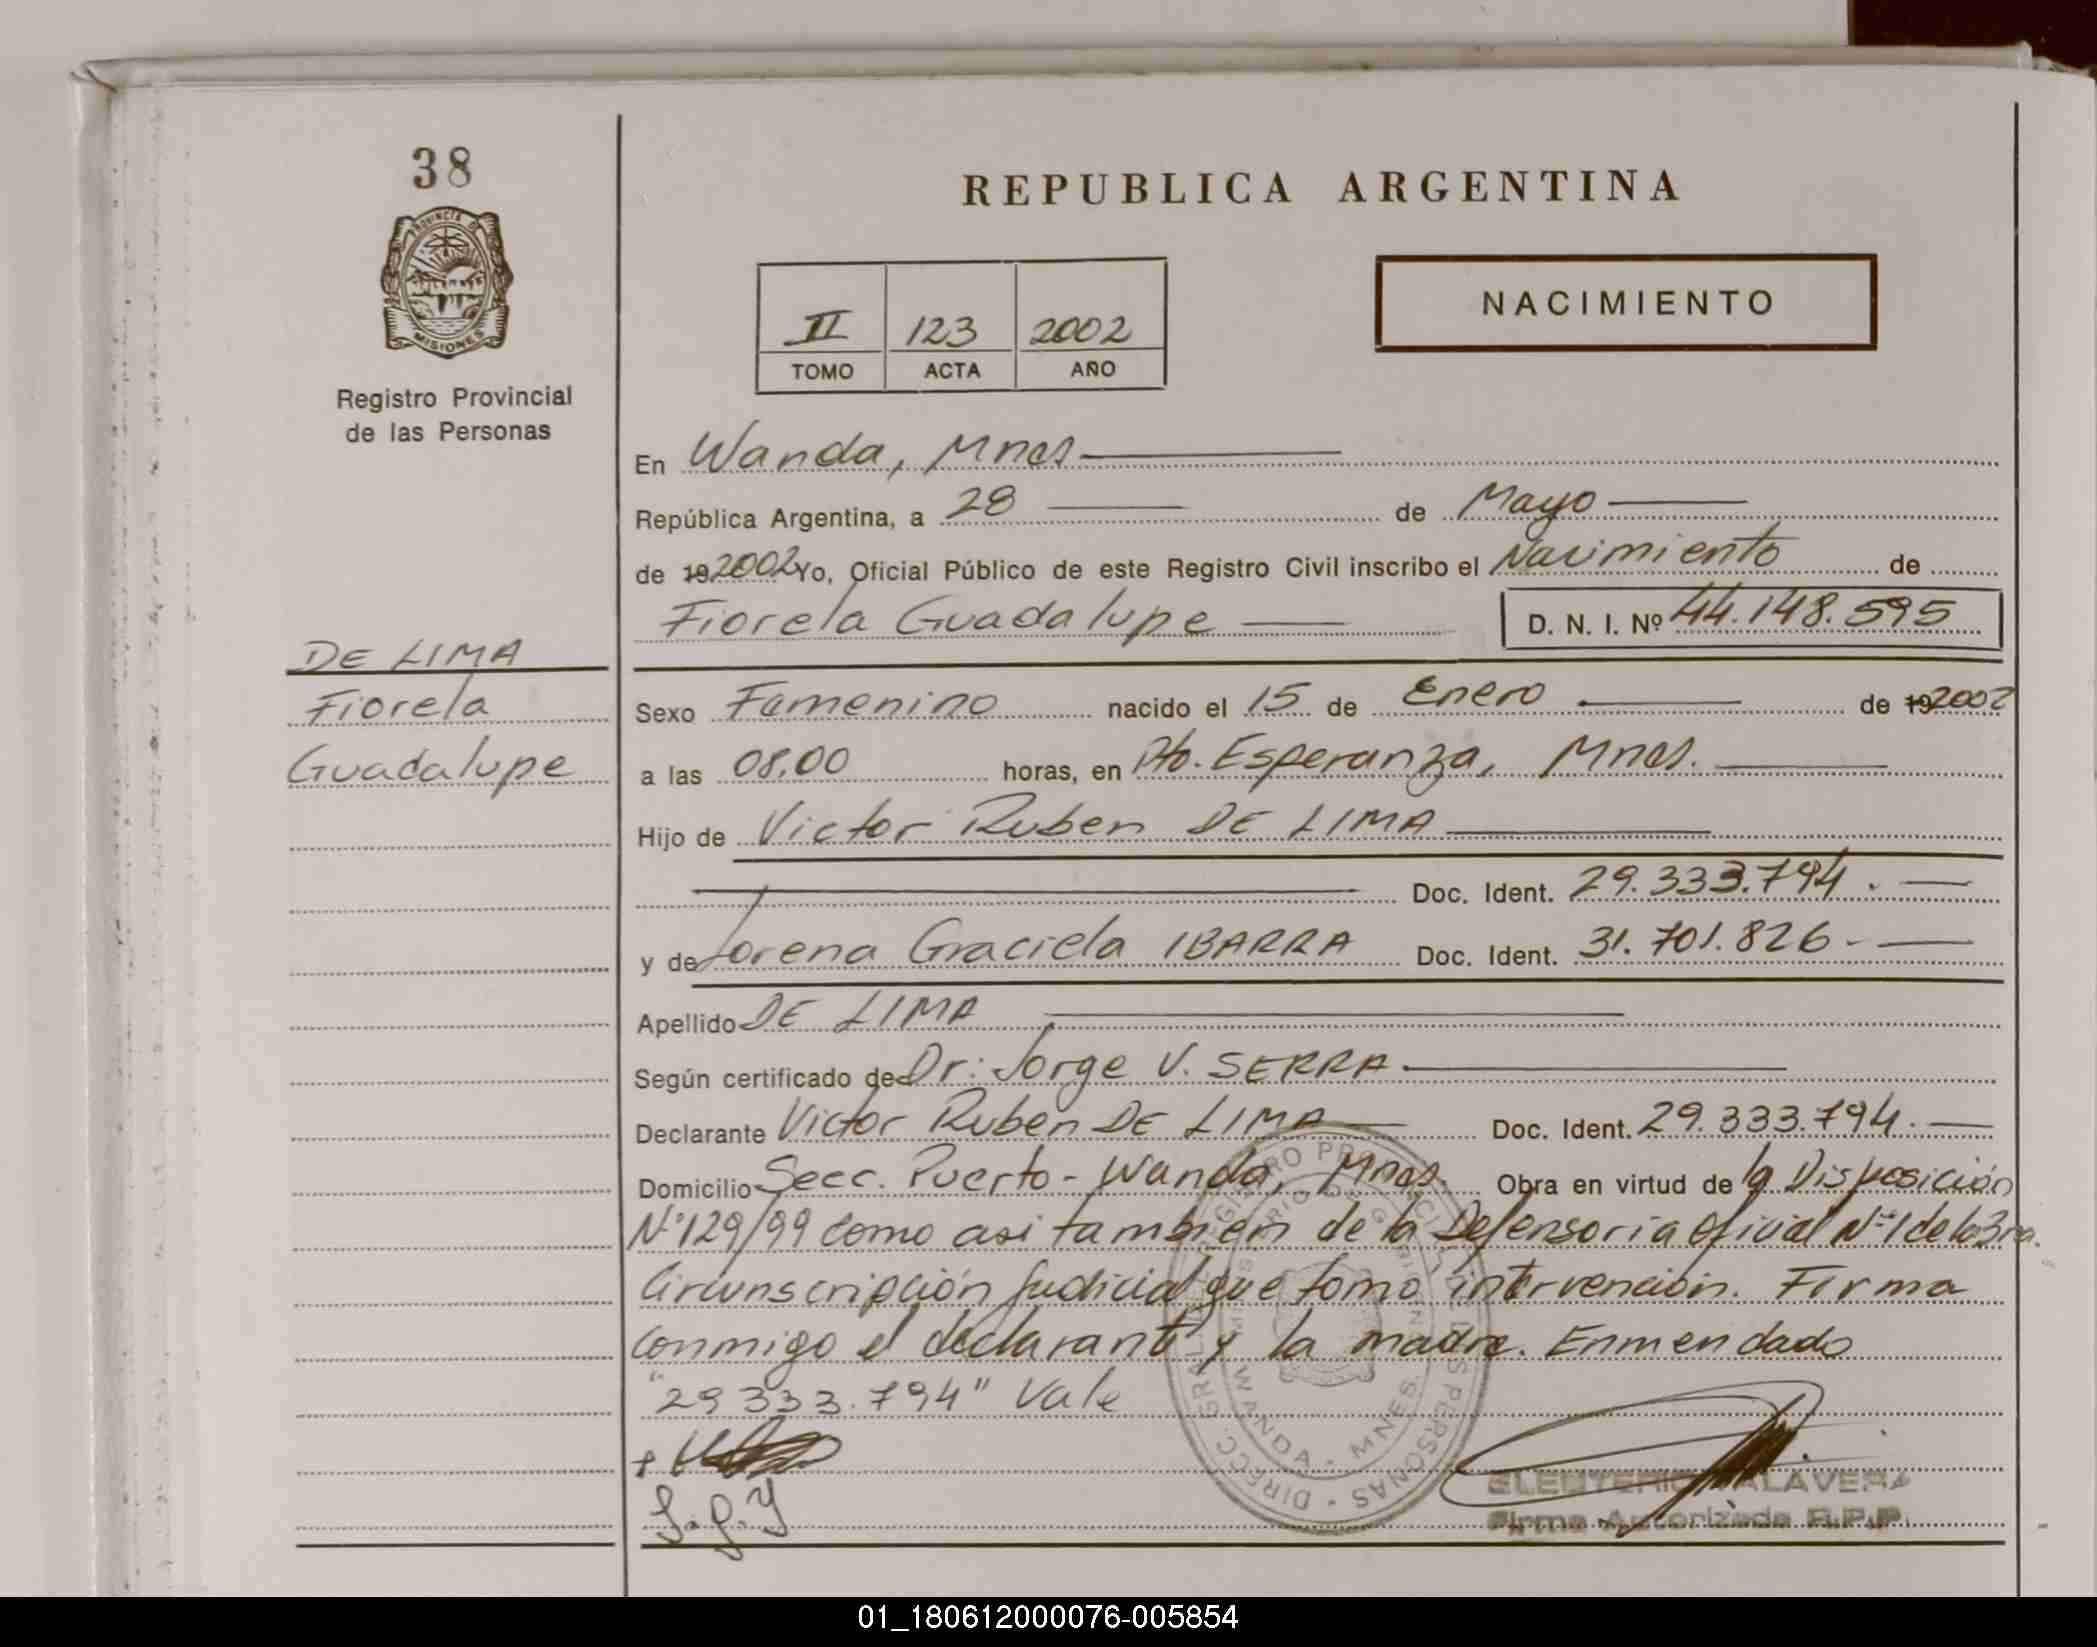 38
PROVINCIA DE
MISIONES
Registro Provincial
de las Personas
DE LIMA
Fiorela
Guadalupe
REPUBLICA ARGENTINA
II 123 2002
TOMO ACTA AÑO
NACIMIENTO
En Wanda, Mnes
República Argentina, a 28 de Mayo
de 192002 Yo, Oficial Público de este Registro Civil inscribo el Nacimiento de
Fiorela Guadalupe D. N. I. Nº 44.148.595
Sexo Femenino nacido el 15 de Enero de 192002
a las 08,00 horas, en Pto. Esperanza, Mnes.
Hijo de Victor Ruben DE LIMA
Doc. Ident. 29.333.794.
y de Lorena Graciela IBARRA Doc. Ident. 31.701.826-
Apellido DE LIMA
Según certificado de Dr: Jorge V. SERRA
Declarante Victor Ruben DE LIMA Doc. Ident. 29.333.794.
Domicilio Secc. Puerto - Wanda, Mnes. Obra en virtud de la Disposición
Nº129/99 como asi tambien de la Defensoria Oficial Nº1 de la 3ra.
Circunscripción Judicial que tomo intervención. Firma
conmigo el declarante y la madre. Enmendado
"29333.794" Vale
L.G.I
ELEUTERIO TALAVERA
Firma Autorizada R.P.P.
WANDA - MNES.
01_180612000076-005854